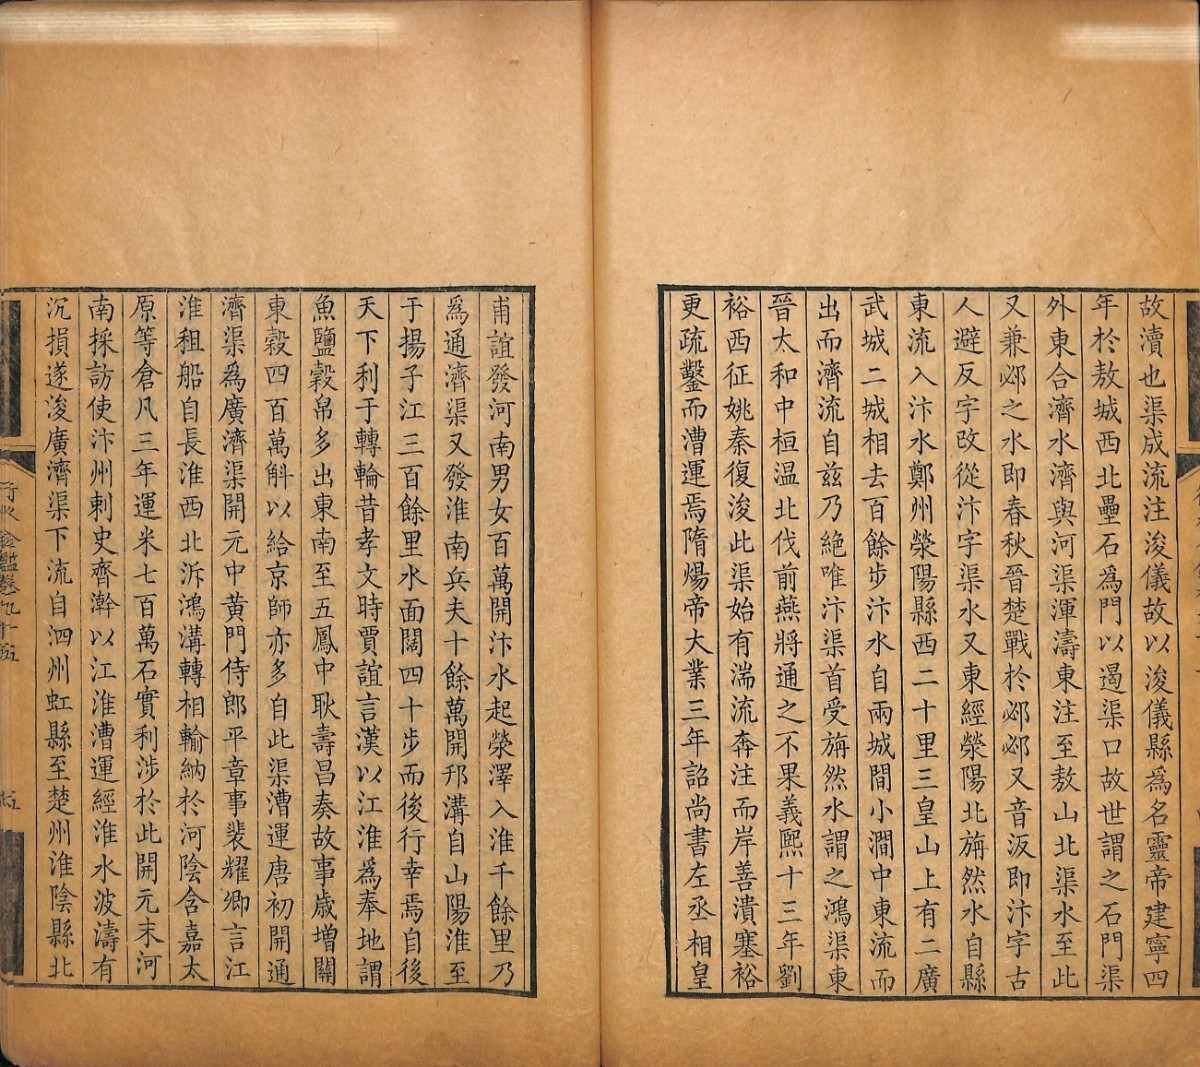 故瀆也渠成流注浚儀故以浚儀縣為名靈帝建寧四
年於敖城西北壘石為門以遏渠口故世謂之石門渠
外東合濟水濟與河渠渾濤東注至敖山北渠水至此
又兼邲之水即春秋晉楚戰於邲邲又音汳即汴字古
人避反字改從汴字渠水又東經滎陽北旃然水自縣
東流入汴水鄭州滎陽縣西二十里三皇山上有二廣
武城二城相去百餘步汴水自兩城閒小澗中東流而
出而濟流自茲乃絕唯汴渠首受旃然水謂之鴻渠東
晉太和中桓溫北伐前燕將通之不果義熙十三年劉
裕西征姚秦復浚此渠始有湍流奔注而岸善潰塞裕
更疏鑿而漕運焉隋煬帝大業三年詔尚書左丞相皇
甫誼發河南男女百萬開汴水起滎澤入淮千餘里乃
為通濟渠又發淮南兵夫十餘萬開邗溝自山陽淮至
于揚子江三百餘里水面闊四十步而後行幸焉自後
天下利于轉輸昔孝文時賈誼言漢以江淮為奉地謂
魚鹽穀帛多出東南至五鳳中耿壽昌奏故事歲增關
東穀四百萬斛以給京師亦多自此渠漕運唐初開通
濟渠為廣濟渠開元中黃門侍郎平章事裴耀卿言江
淮租船自長淮西北泝鴻溝轉相輸納於河陰含嘉太
原等倉凡三年運米七百萬石實利涉於此開元末河
南採訪使汴州刺史齊澣以江淮漕運經淮水波濤有
沉損遂浚廣濟渠下流自泗州虹縣至楚州淮陰縣北
行水金鑑卷九十五
五